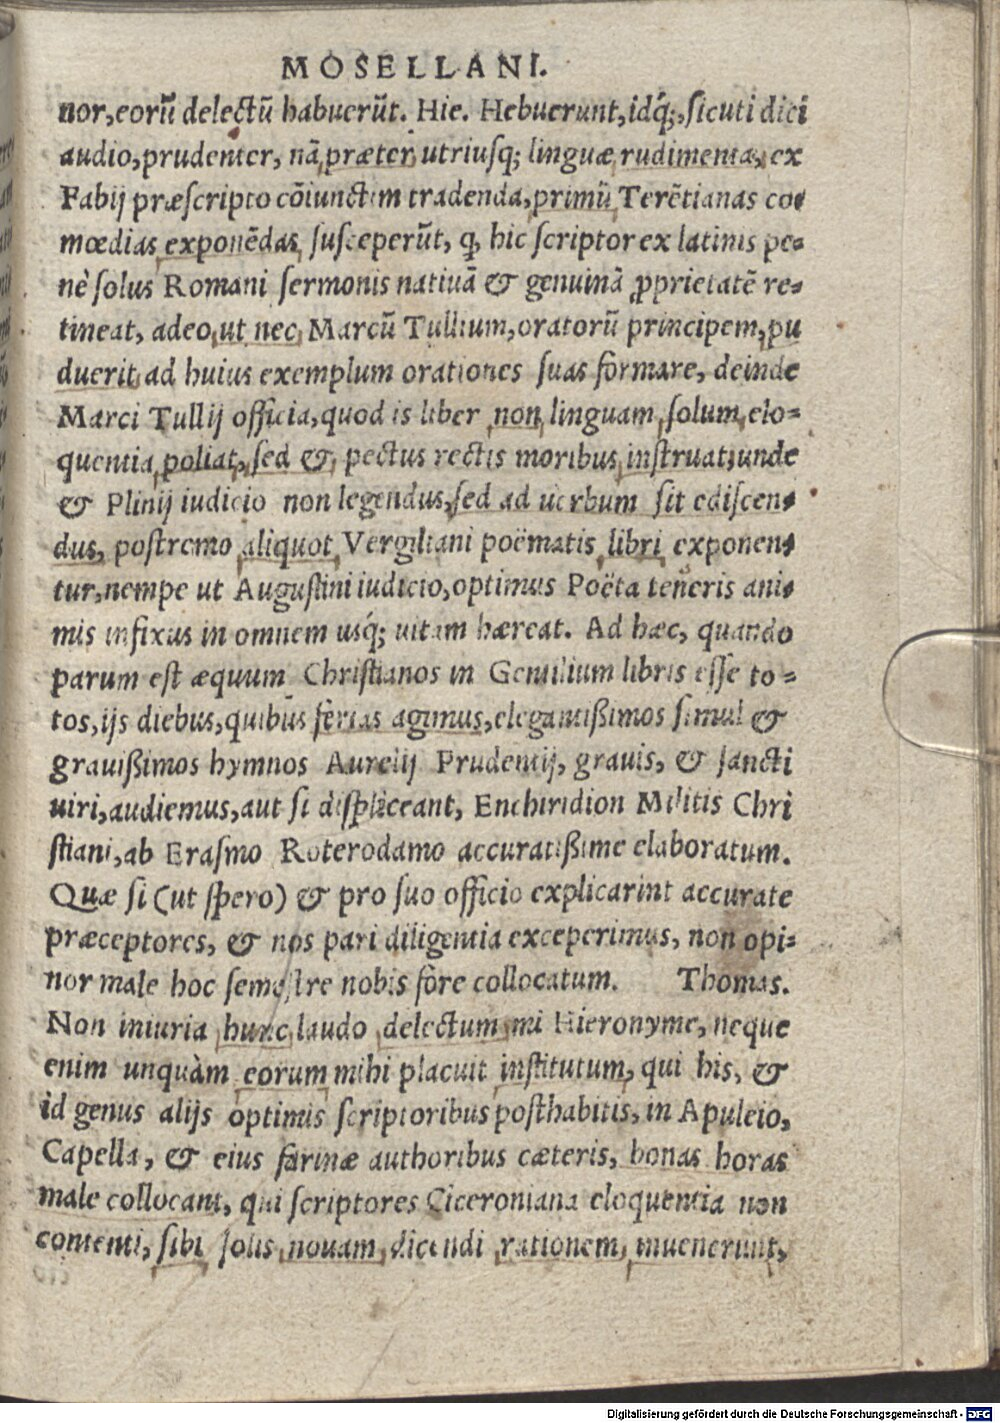 MOSELLANI.
nor,eorũ delectũ habuerũt. Hie. Hebuerunt,idq́;,sicuti dici
audio,prudenter, nã præter utriusq; linguæ rudimenta, ex
Fabij præscripto cõiunctim tradenda,primũ Terẽtianas co-
mœdias exponẽdas susceperũt, ꝙ hic scriptor ex latinis pe-
nè solus Romani sermonis natiuã & genuinã ꝓprietatẽ re-
tineat, adeo,ut nec Marcũ Tullium,oratorũ principem,pu
duerit ad huius exemplum orationes suas formare, deinde
Marci Tullij officia,quod is liber non linguam solum elo-
quentia poliat,sed & pectus rectis moribus instruat,unde
& Plinij iudicio non legendus,sed ad uerbum sit ediscen-
dus, postremo aliquot Vergiliani poëmatis libri exponen-
tur,nempe ut Augustini iudicio,optimus Poëta teneris ani-
mis infixus in omnem usq́; uitam hæreat. Ad hæc, quando
parum est æquum Christianos in Gentilium libris esse to-
tos,ijs diebus,quibus ferias agimus,elegantißimos simul &
grauißimos hymnos Aurelij Prudentij, grauis, & sancti
uiri,audiemus,aut si displiceant, Enchiridion Militis Chri
stiani,ab Erasmo Roterodamo accuratißime elaboratum.
Quæ si (ut spero) & pro suo officio explicarint accurate
præceptores, & nos pari diligentia exceperimus, non opi-
nor male hoc semestre nobis fore collocatum. Thomas.
Non iniuria hunc laudo delectum mi Hieronyme, neque
enim unquàm eorum mihi placuit institutum, qui his, &
id genus alijs optimis scriptoribus posthabitis, in Apuleio,
Capella, & eius farinæ authoribus cæteris, bonas horas
male collocant, qui scriptores Ciceroniana eloquentia non
contenti, sibi solis nouam dicendi rationem inuenerunt,
Digitalisierung gefördert durch die Deutsche Forschungsgemeinschaft - DFG